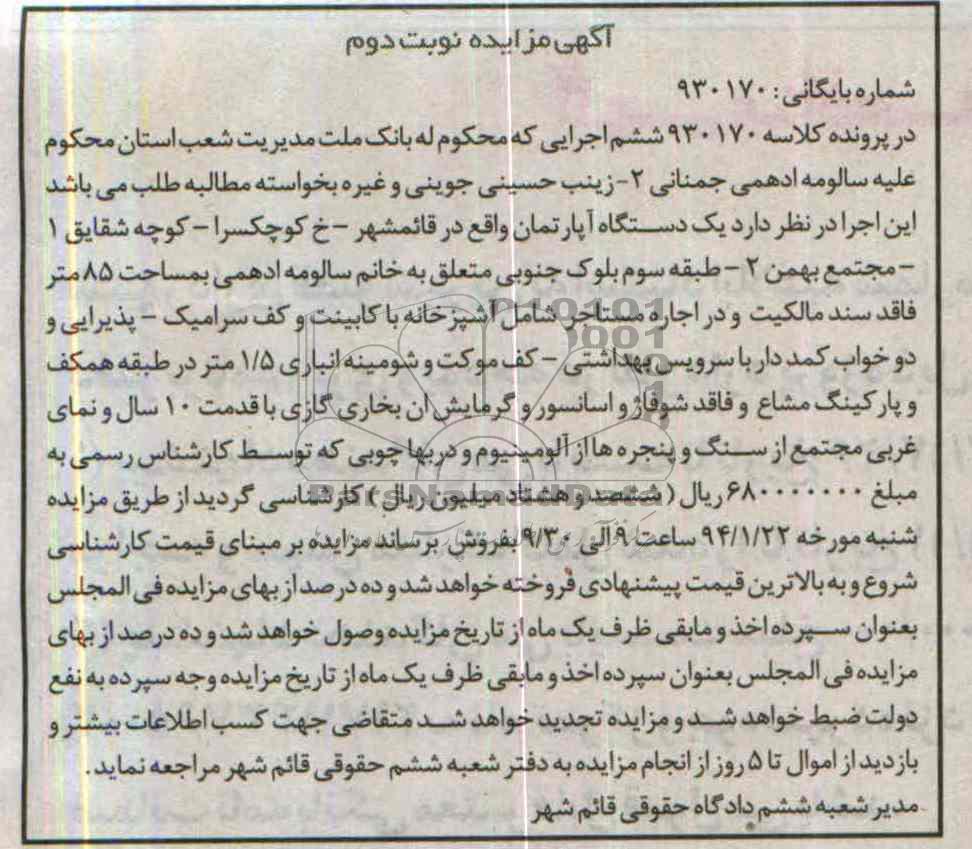 آگهی مزایده نوبت دوم
شماره بایگانی: ۹۳۰۱۷۰
در پرونده کلاسه ۹۳۰۱۷۰ ششم اجرایی که محکوم له بانک ملت مدیریت شعب استان محکوم
علیه سالومه ادهمی جمنانی ۲-زینب حسینی جوینی و غیره بخواسته مطالبه طلب می باشد
این اجرا در نظر دارد یک دستگاه آپارتمان واقع در قائمشهر – خ کوچکسرا – کوچه شقایق ۱
– مجتمع بهمن ۲ – طبقه سوم بلوک جنوبی متعلق به خانم سالومه ادهمی بمساحت ۸۵ متر
فاقد سند مالکیت و در اجاره مستاجر شامل آشپزخانه با کابینت و کف سرامیک – پذیرایی و
دو خواب کمد دار با سرویس بهداشتی – کف موکت و شومینه انباری ۱/۵ متر در طبقه همکف
و پارکینگ مشاع و فاقد شوفاژ و اسانسور و گرمایش ان بخاری گازی با قدمت ۱۰ سال و نمای
غربی مجتمع از سنگ و پنجره ها از آلومینیوم و دربها چوبی که توسط کارشناس رسمی به
مبلغ ۶۸۰۰۰۰۰۰۰ ریال (ششصد و هشتاد میلیون ریال) کارشناسی گردید از طریق مزایده
شنبه مورخه ۹۴/۱/۲۲ ساعت ۹ الی ۹/۳۰ بفروش برساند مزایده بر مبنای قیمت کارشناسی
شروع و به بالاترین قیمت پیشنهادی فروخته خواهد شد و ده درصد از بهای مزایده فی المجلس
بعنوان سپرده اخذ و مابقی ظرف یک ماه از تاریخ مزایده وصول خواهد شد و ده درصد از بهای
مزایده فی المجلس بعنوان سپرده اخذ و مابقی ظرف یک ماه از تاریخ مزایده وجه سپرده به نفع
دولت ضبط خواهد شد و مزایده تجدید خواهد شد متقاضی جهت کسب اطلاعات بیشتر و
بازدید از اموال تا ۵ روز از انجام مزایده به دفتر شعبه ششم حقوقی قائم شهر مراجعه نماید.
مدیر شعبه ششم دادگاه حقوقی قائم شهر